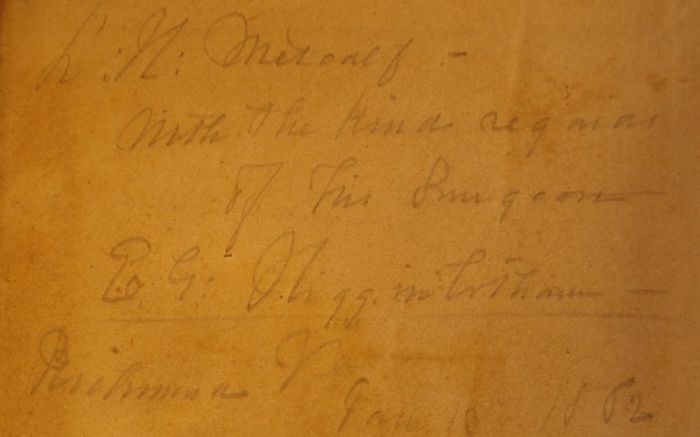 L. N. Metcalf -
With the kind regards
of his Surgeon
E G. Higginbotham -
Richmond Va
Jan 1862